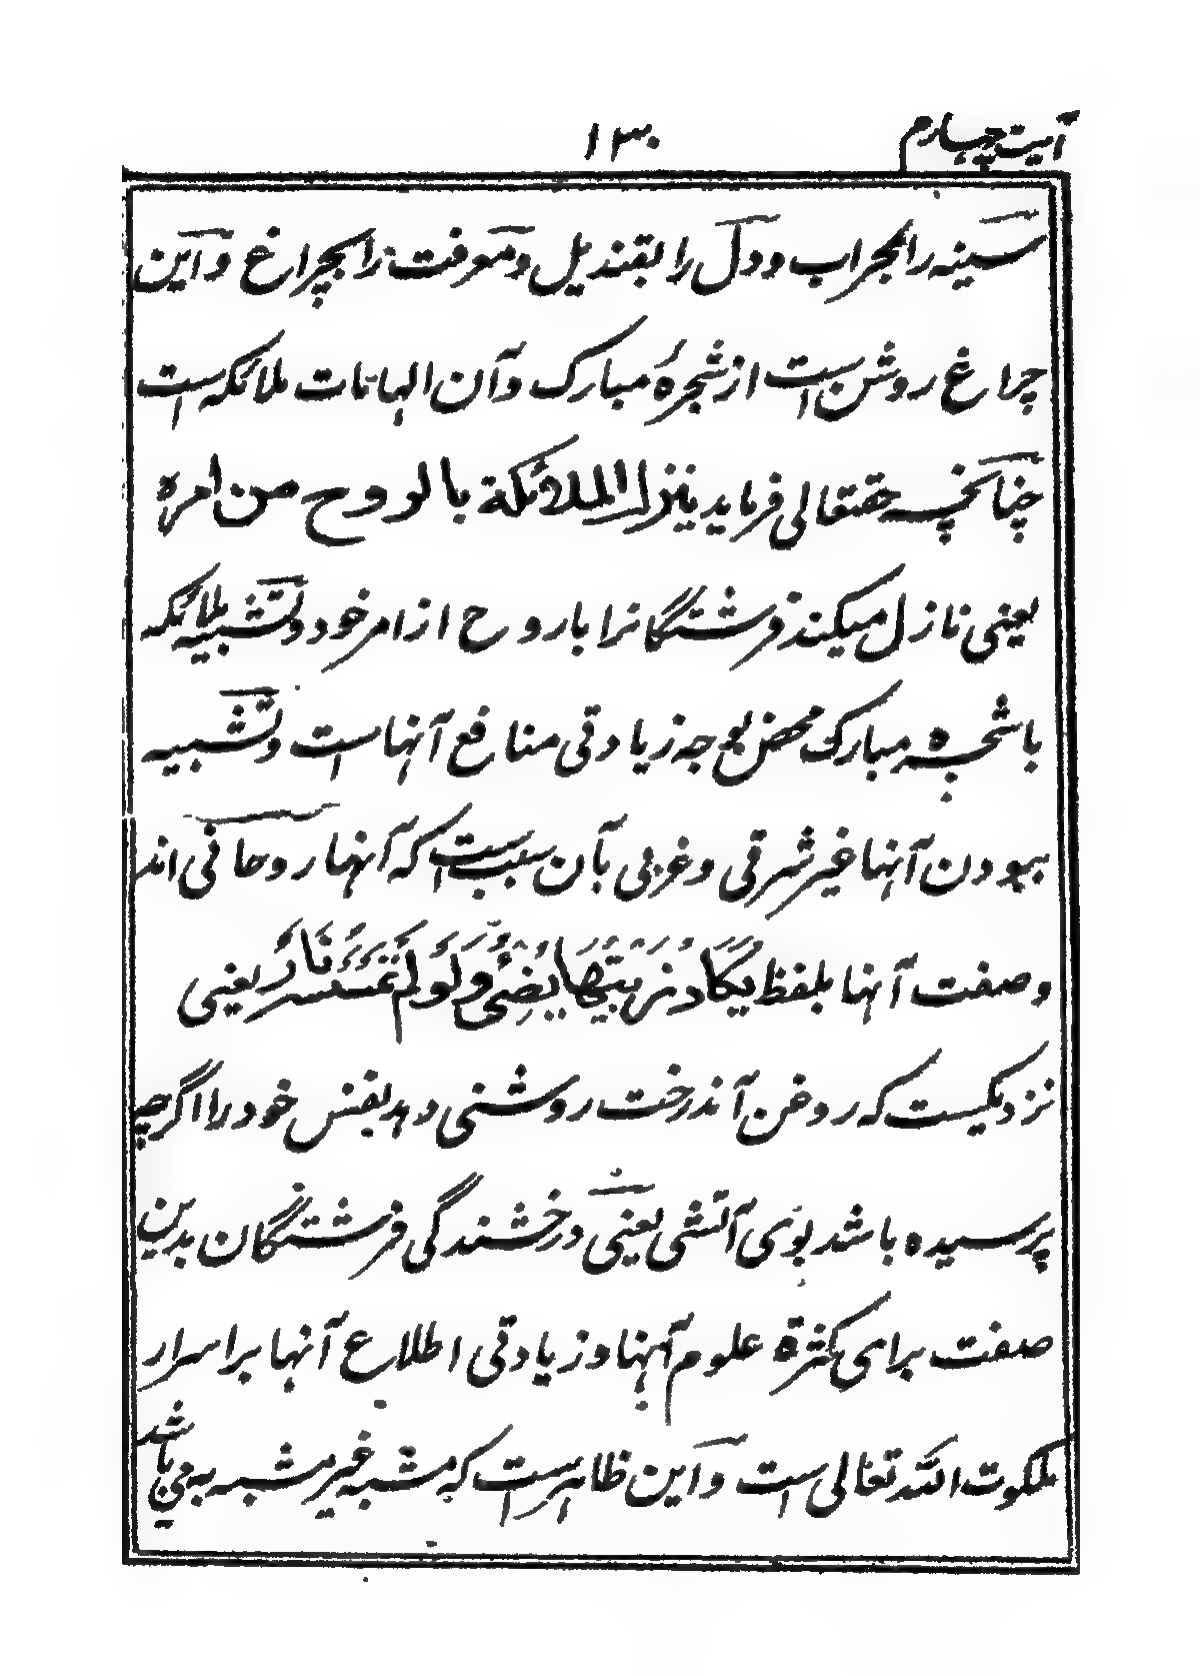 آیت چهارم
۱۳۰
سینه را بمحراب و دل را بقندیل و معرفت را بچراغ و این
چراغ روشن است از شجرهٔ مبارک و آن الهامات ملائکه است
چنانچه حقتعالی فرماید ینزل الملائكة بالروح من امره
یعنی نازل میکند فرشتگانرا با روح از امر خود و تشبیه ملائکه
با شجره مبارک محض بوجه زیادتی منافع آنهاست و تشبیه
ببودن آنها غیر شرقی و غربی بآن سبب است که آنها روحانی اند
و صفت آنها بلفظ يَكَادُ زَيْتُهَا يُضِئُ وَلَوْ لَمْ تَمْسَسْهُ نَارٌ یعنی
نزدیکیست که روغن آندرخت روشنی دهد بنفس خود را اگرچه
نرسیده باشد بوی آتشی یعنی درخشندگی فرشتگان بدین
صفت برای کثرة علوم آنها و زیادتی اطلاع آنها بر اسرار
ملکوت الله تعالی است و این ظاهر است که مشبه غیر مشبه به می باشد